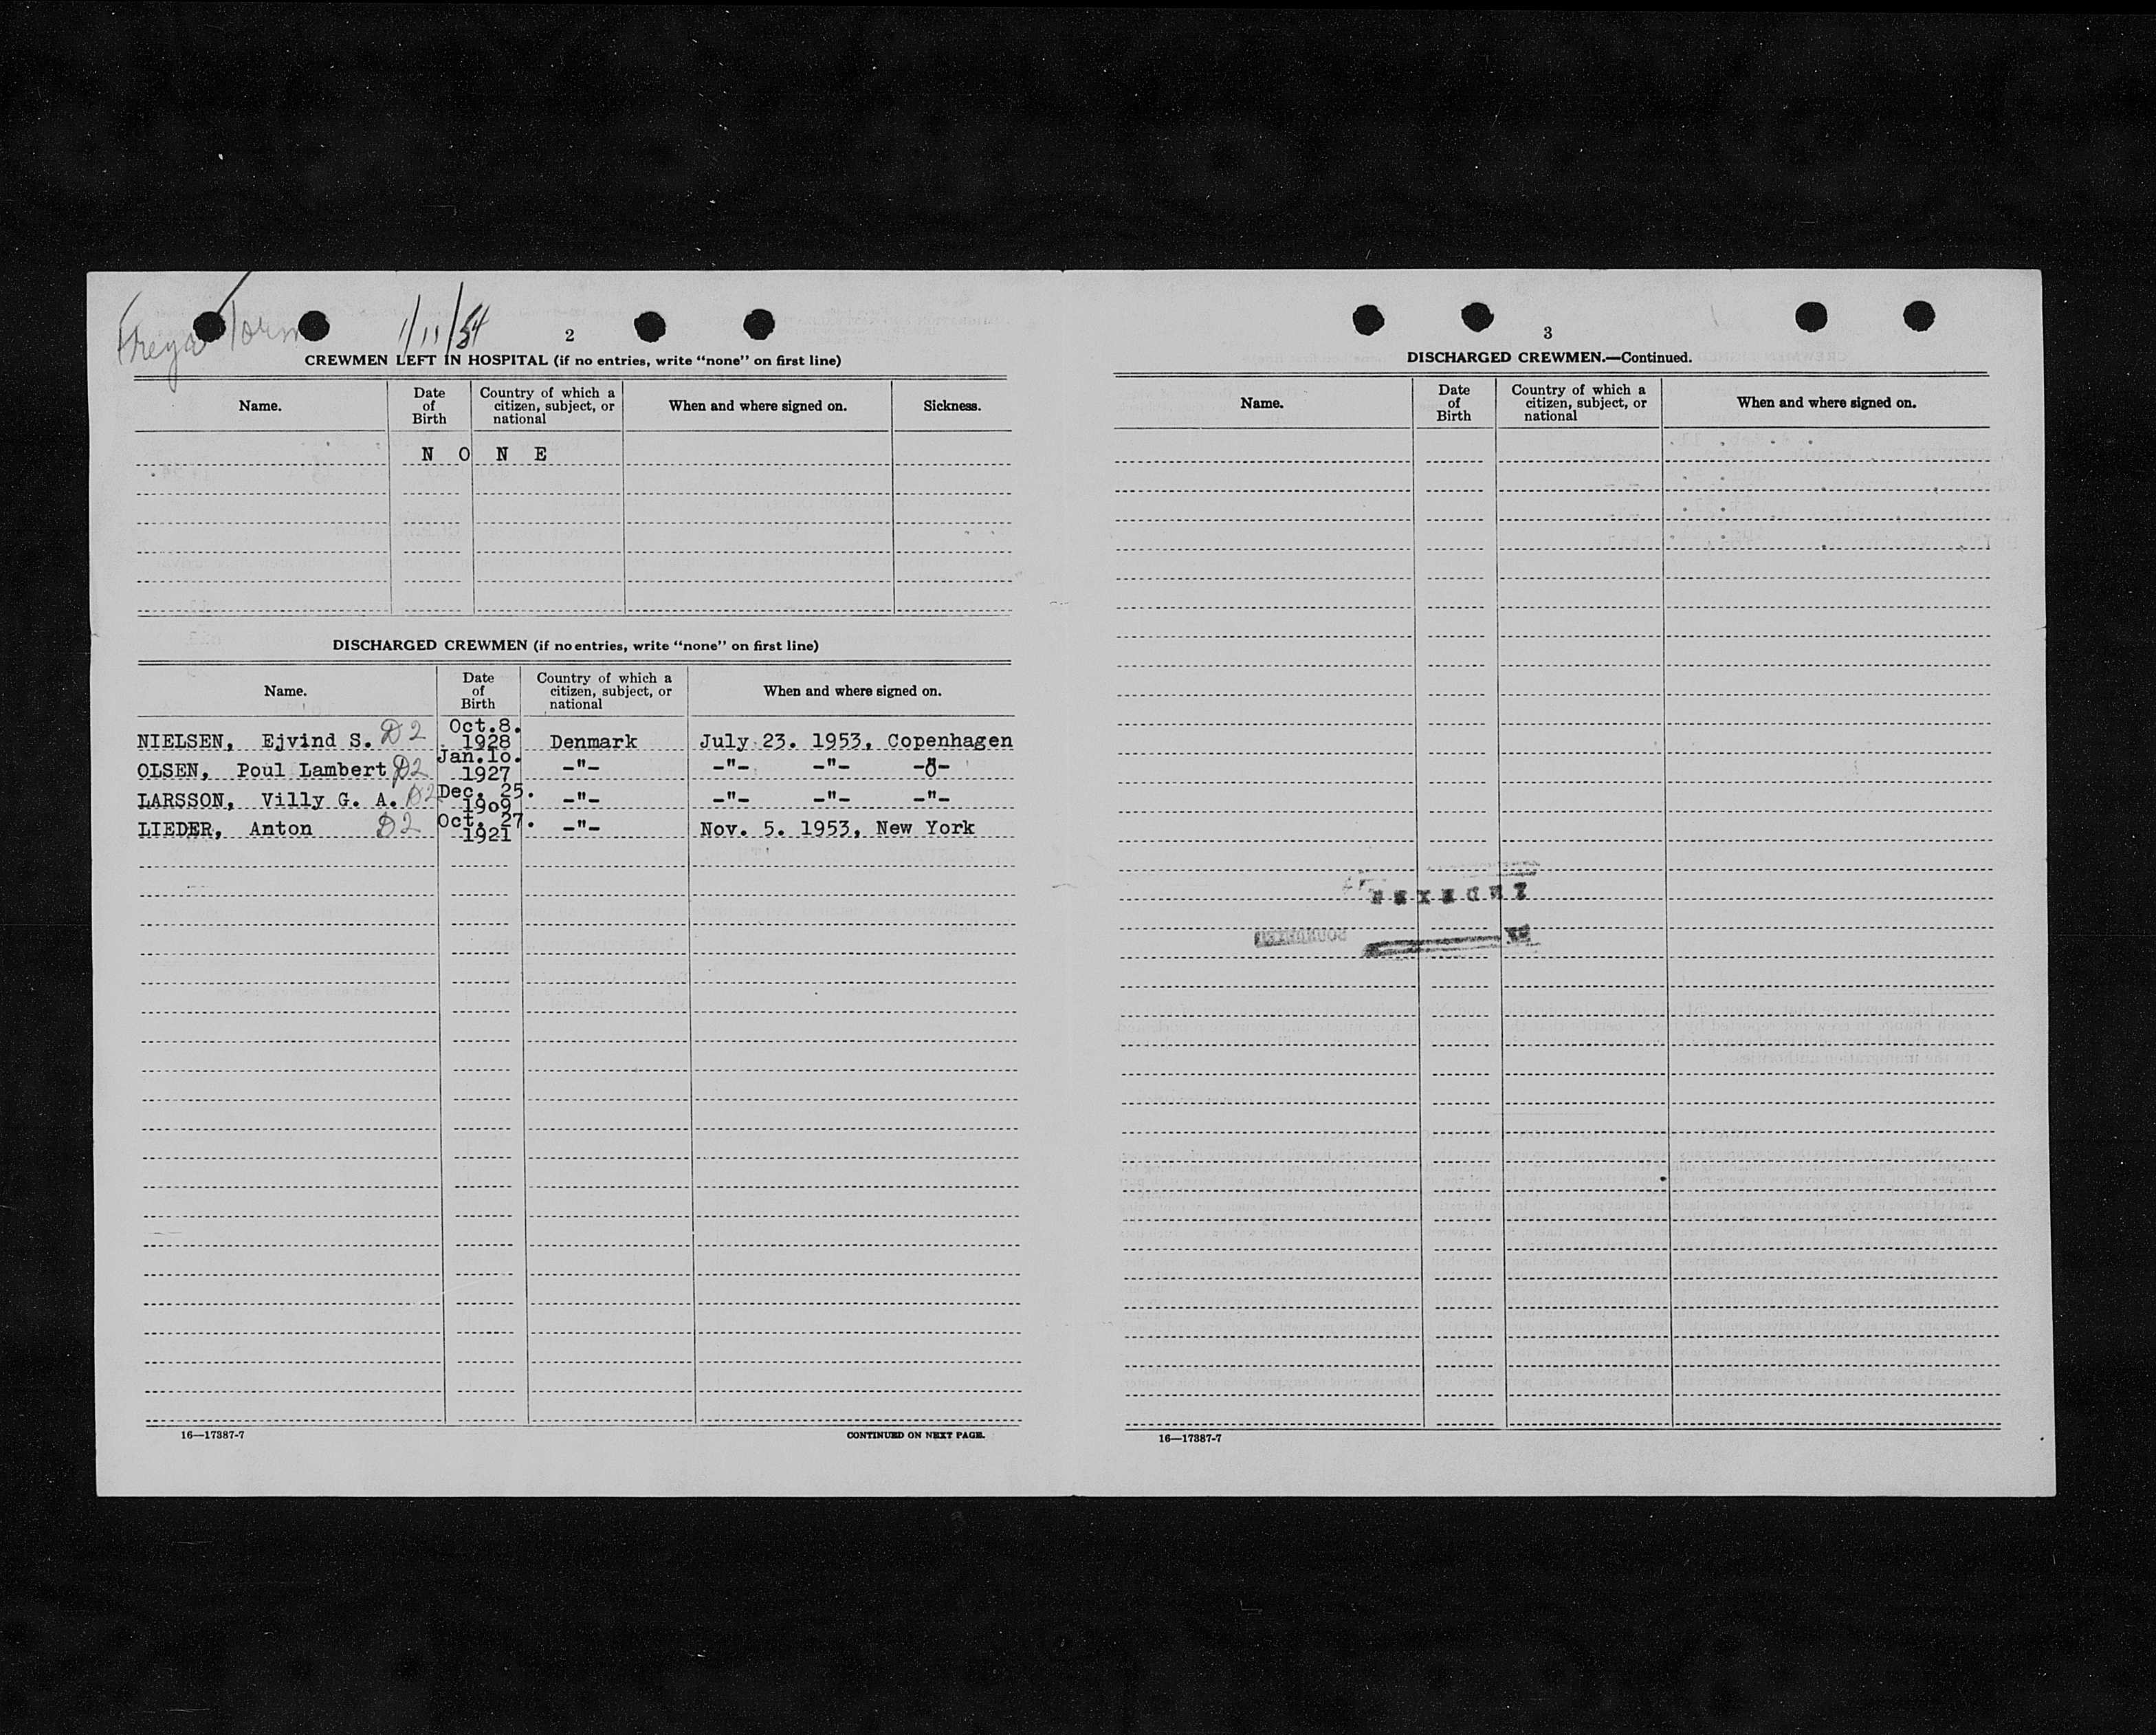 Freya Torm 1/11/54
2
CREWMEN LEFT IN HOSPITAL (if no entries, write “none” on first line)
Name. Date of Birth Country of which a citizen, subject, or national When and where signed on. Sickness.
N O N E
DISCHARGED CREWMEN (if no entries, write “none” on first line)
Name. Date of Birth Country of which a citizen, subject, or national When and where signed on.
NIELSEN, Ejvind S. D2 Oct.8. 1928 Denmark July 23. 1953, Copenhagen
OLSEN, Poul Lambert D2 Jan.1o. 1927 -"- -"- -"- -"-
LARSSON, Villy G. A. D2 Dec. 25. 19o9 -"- -"- -"- -"-
LIEDER, Anton D2 Oct. 27. 1921 -"- Nov. 5. 1953, New York
16—17387-7 CONTINUED ON NEXT PAGE.
3
DISCHARGED CREWMEN.—Continued.
Name. Date of Birth Country of which a citizen, subject, or national When and where signed on.
INDEXED
BY
SOUNDEXED
16—17387-7